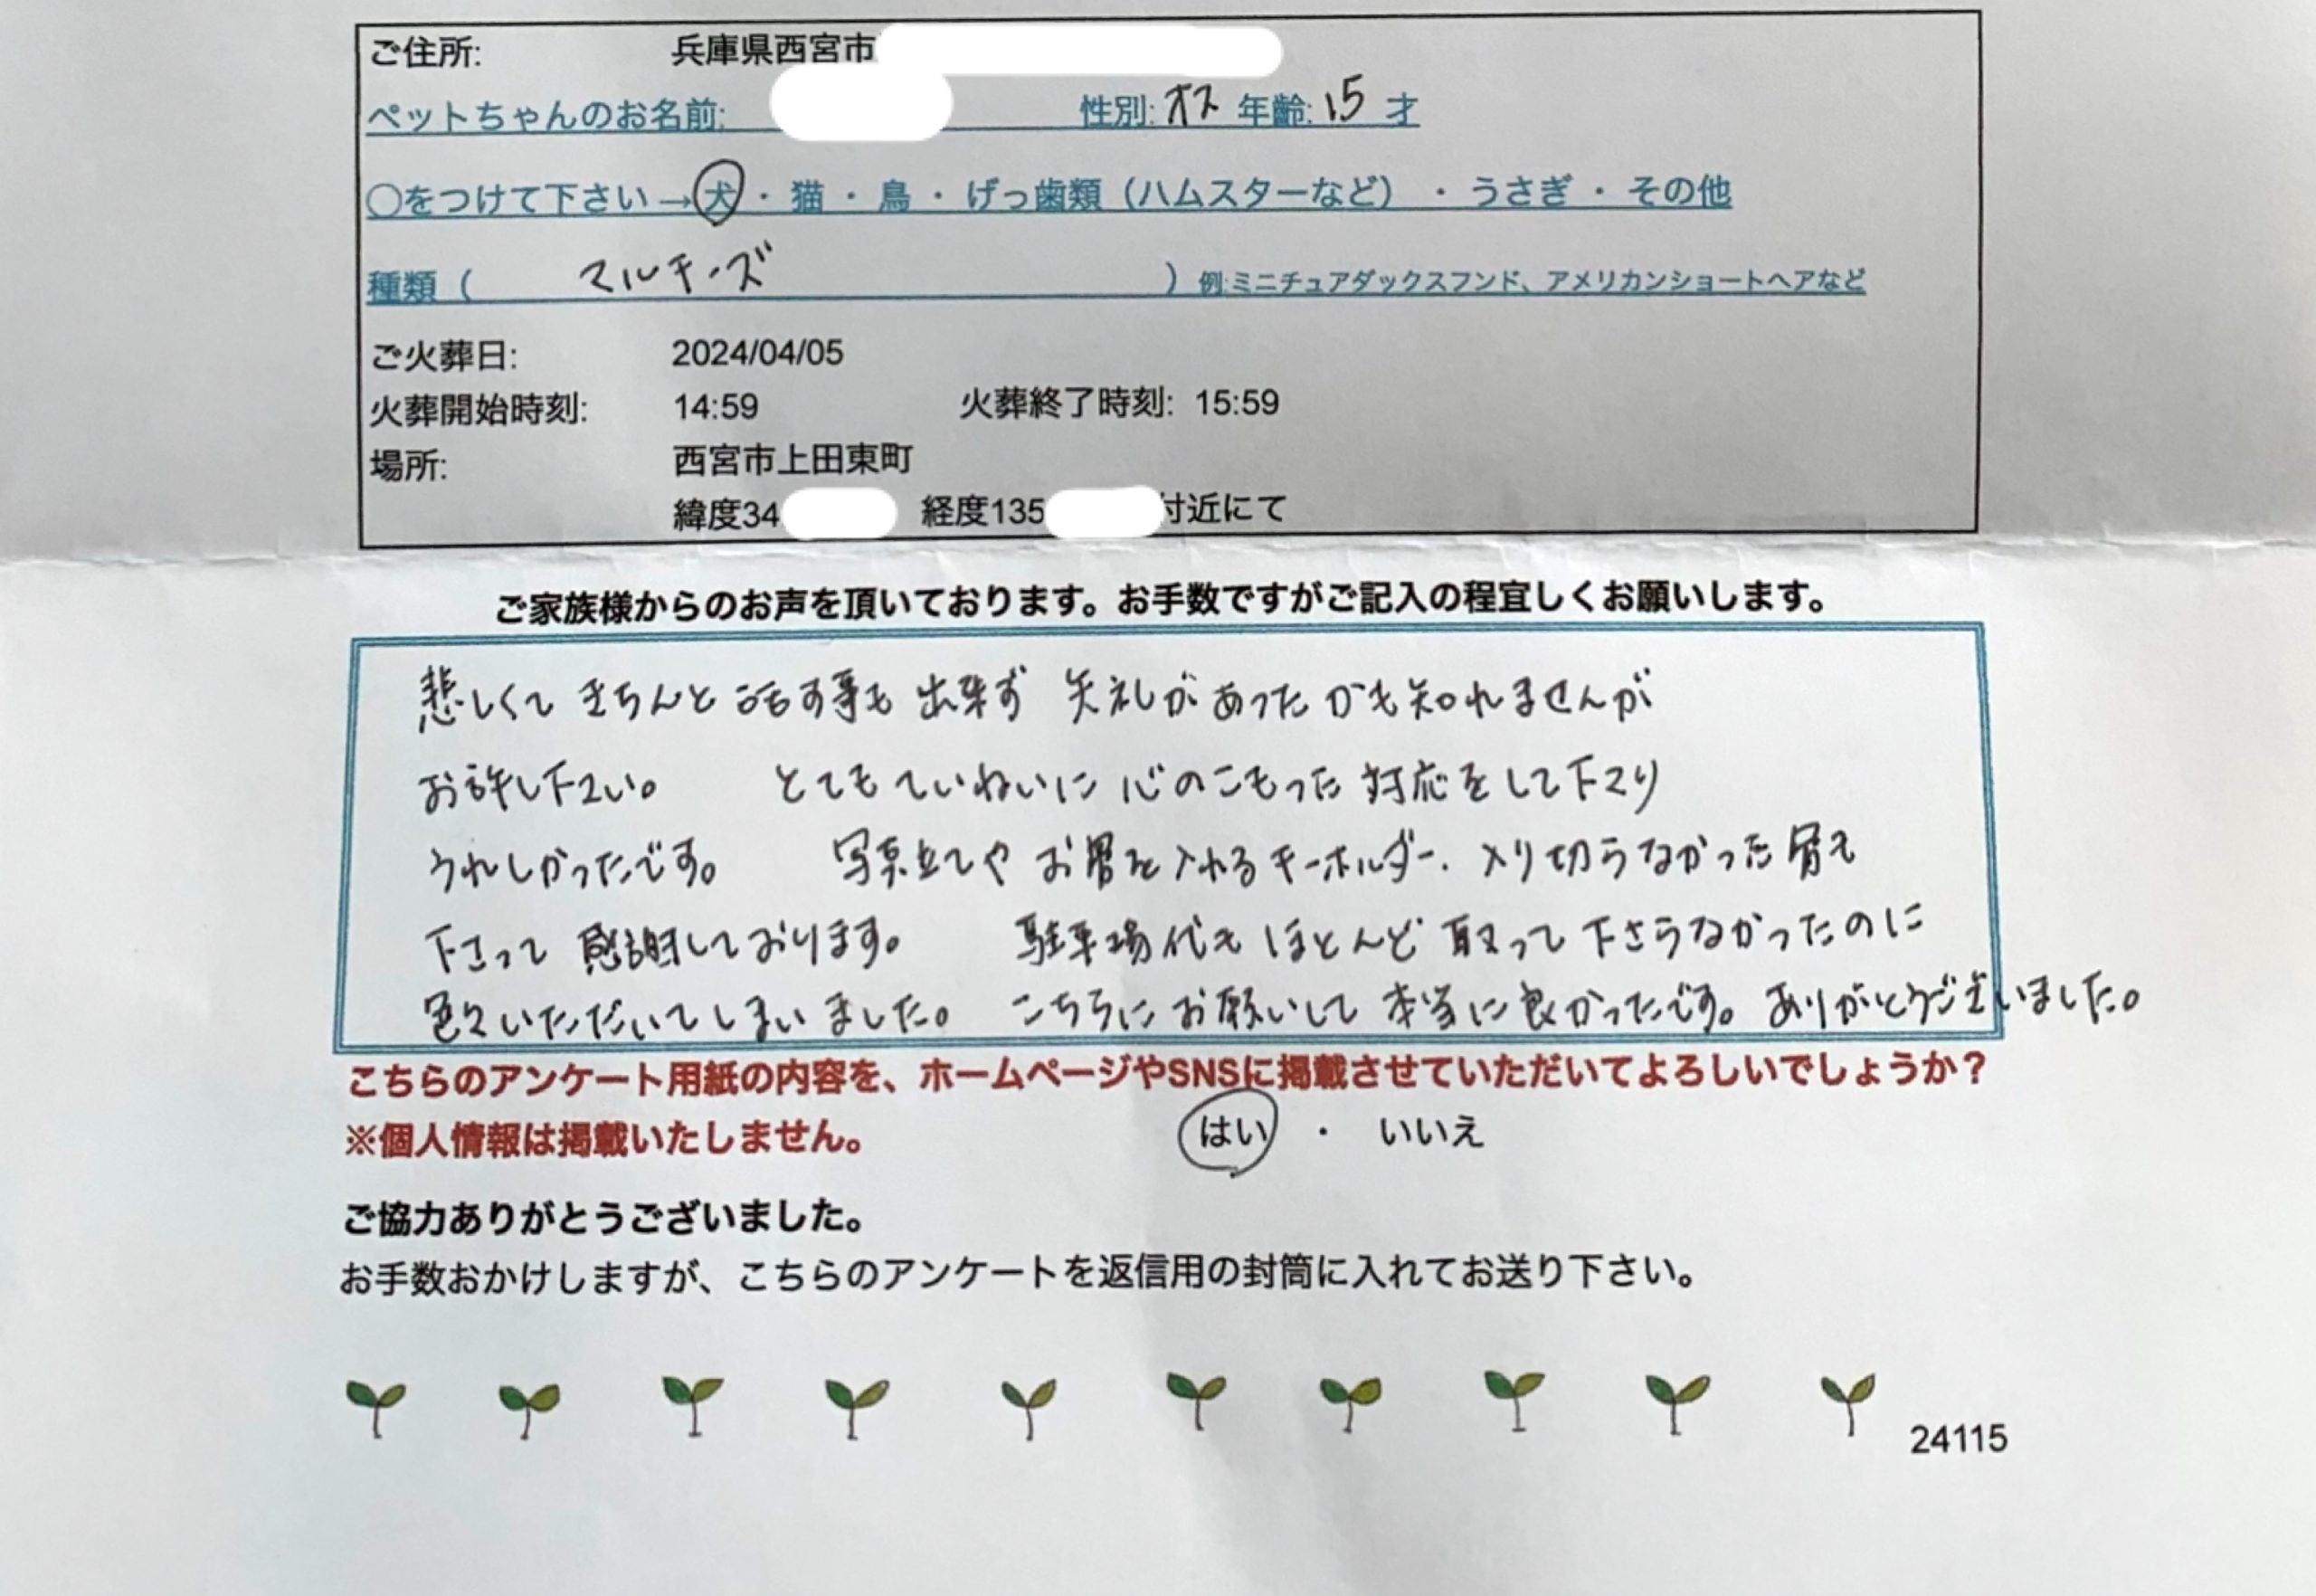 ご住所: 兵庫県西宮市
ペットちゃんのお名前: 性別: オス 年齢: 15 才
○をつけて下さい→犬・猫・鳥・げっ歯類（ハムスターなど）・うさぎ・その他
種類（ マルチーズ ）例:ミニチュアダックスフンド、アメリカンショートヘアなど
ご火葬日: 2024/04/05
火葬開始時刻: 14:59 火葬終了時刻: 15:59
場所: 西宮市上田東町
緯度34 経度135 付近にて
ご家族様からのお声を頂いております。お手数ですがご記入の程宜しくお願いします。
悲しくて きちんと話す事も出来ず 失礼があったかも知れませんが
お許し下さい。 とてもていねいに心のこもった対応をして下さり
うれしかったです。 写真立てやお骨を入れるキーホルダー、入り切らなかった骨も
下さって感謝しております。 駐車場代もほとんど取って下さらなかったのに
色々いただいてしまいました。 こちらにお願いして本当に良かったです。ありがとうございました。
こちらのアンケート用紙の内容を、ホームページやSNSに掲載させていただいてよろしいでしょうか？
※個人情報は掲載いたしません。 はい ・ いいえ
ご協力ありがとうございました。
お手数おかけしますが、こちらのアンケートを返信用の封筒に入れてお送り下さい。
24115